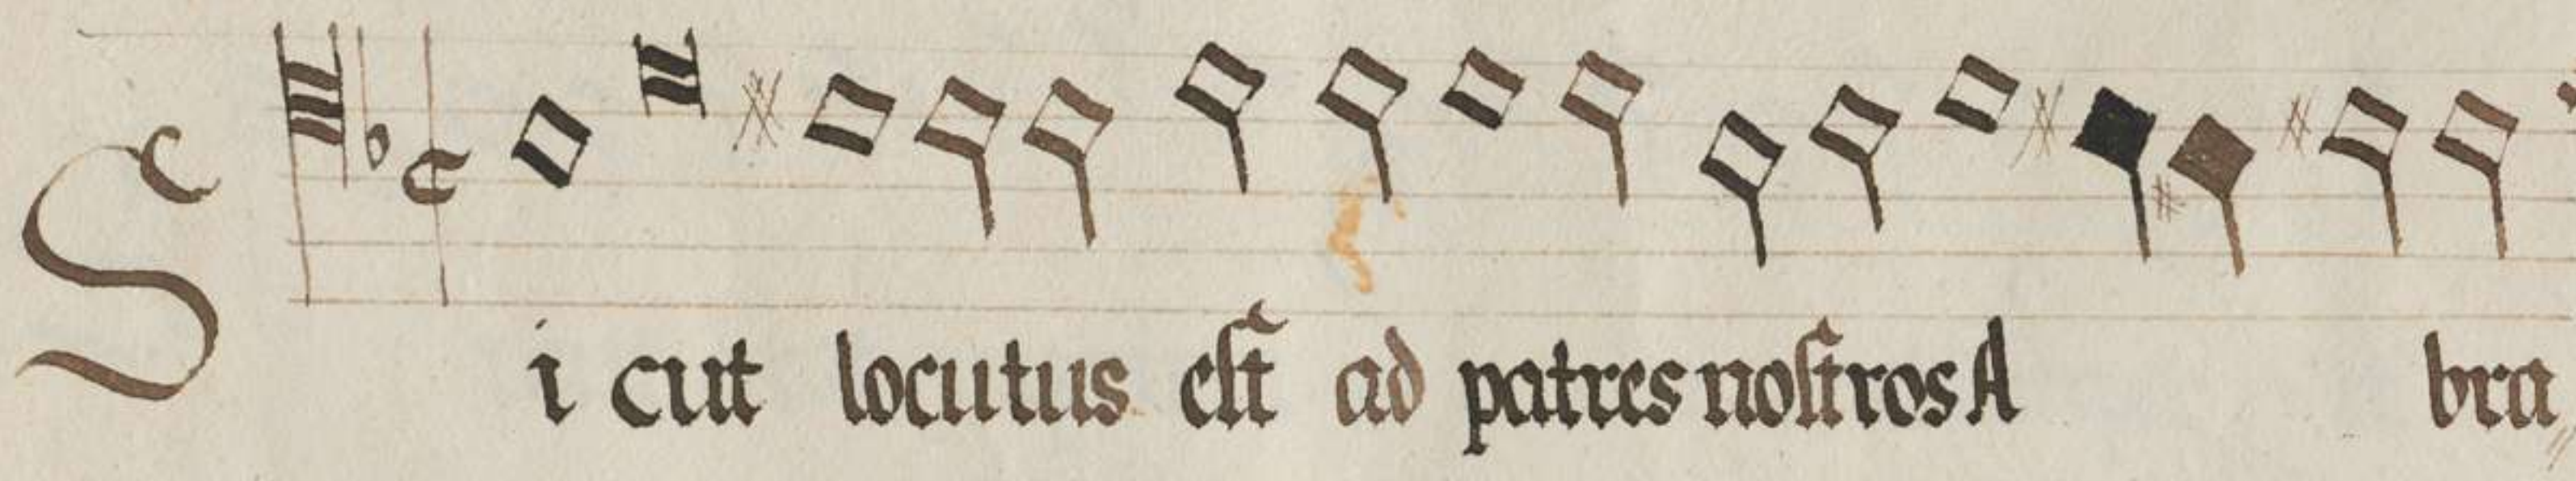 Si cut locutus est ad patres nostros A bra